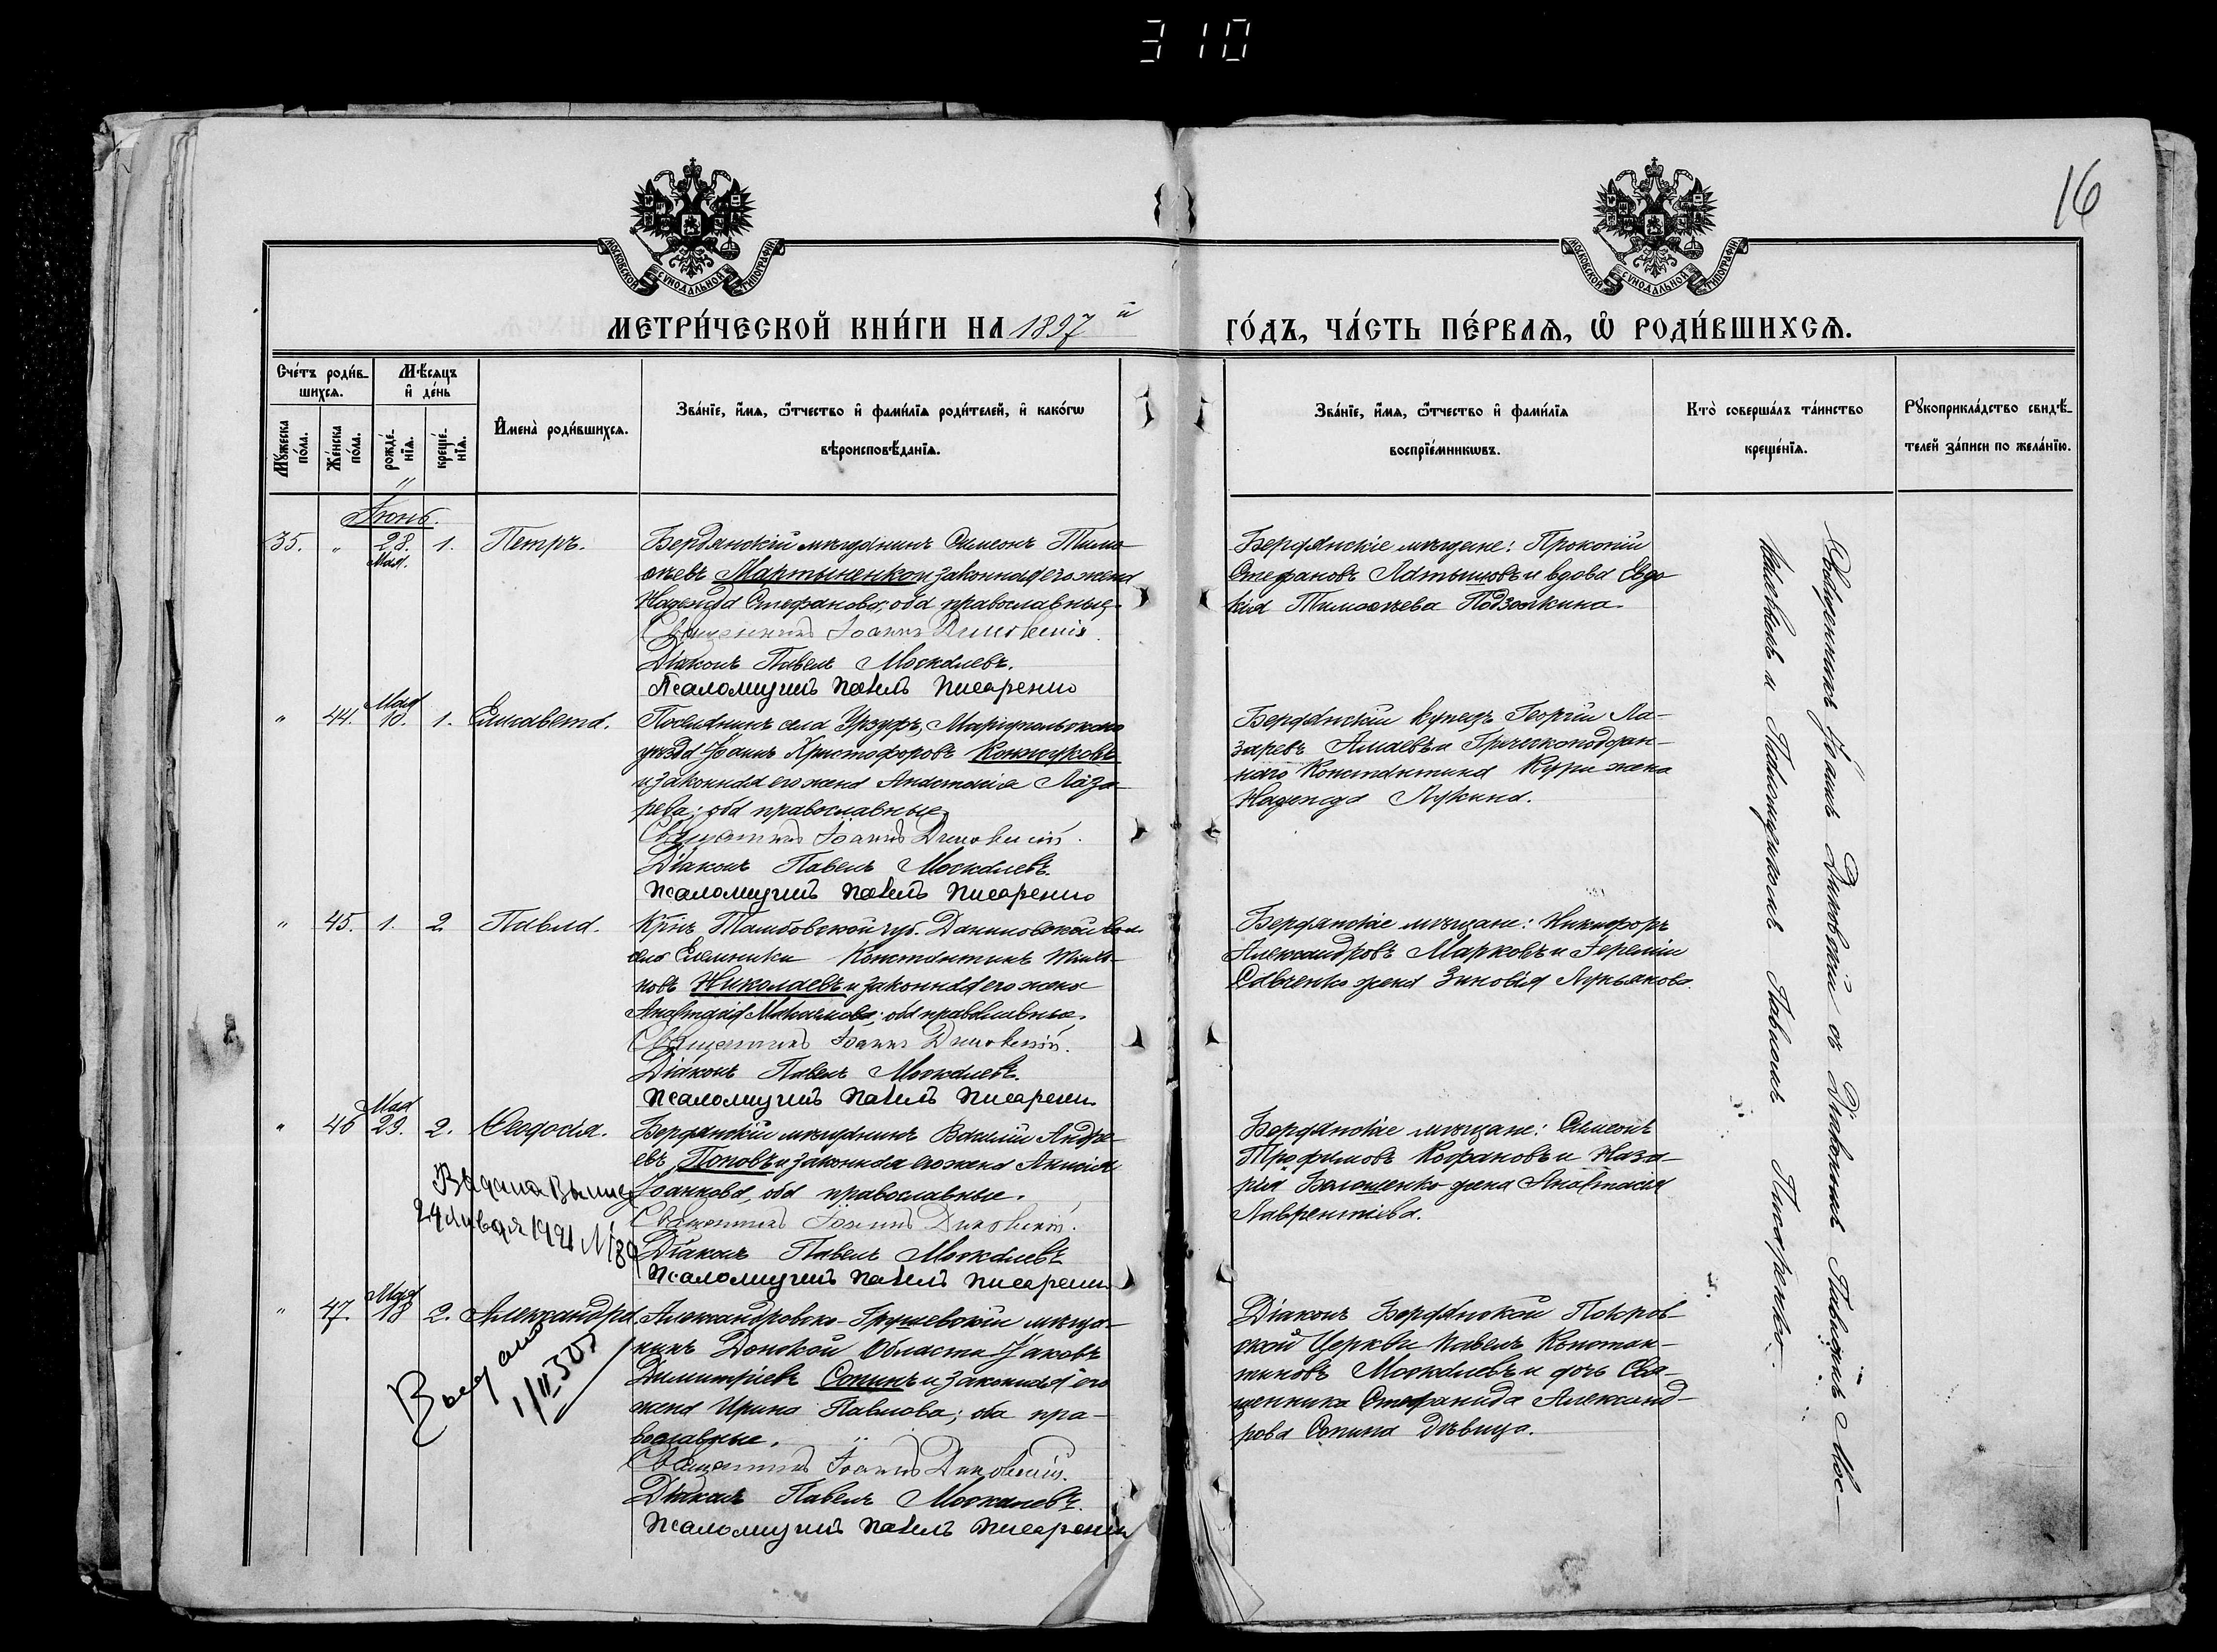 310
16
МОСКОВСКОЙ СѴНОДАЛЬНОЙ ТИПОГРАФІИ
МОСКОВСКОЙ СѴНОДАЛЬНОЙ ТИПОГРАФІИ
МЕТРИ́ЧЕСКОЙ КНИ́ГИ НА 1897 й
ГО́ДЪ, ЧА́СТЬ ПЕ́РВАѦ, Ѡ҆ РОДИ́ВШИХСѦ.
Сче́тъ роди́в-
шихсѧ.
Мꙋ́жеска по́ла.
Же́нска по́ла.
Мѣ́сѧцъ
и҆ де́нь
рожде́-
нїѧ.
креще́-
нїѧ.
И҆мена̀ роди́вшихсѧ.
Зва́нїе, и҆́мѧ, ѻ҆́тчество и҆ фами́лїѧ роди́телей, и҆ како́гѡ
вѣроисповѣ́данїѧ.
Зва́нїе, и҆́мѧ, ѻ҆́тчество и҆ фами́лїѧ
воспрїе́мникѡвъ.
Кто̀ соверша́лъ та́инство
креще́нїѧ.
Рꙋкоприкла́дство свидѣ́-
телей за́писи по жела́нїю.
Іюнь.
35. " 28. Мая. 1. Петръ.
Бердянскій мѣщанинъ Симеонъ Тимо-
ѳеевъ Мартыненко и законная его жена
Надежда Стефанова, оба православные.
Священникъ Іоаннъ Диковскій.
Діаконъ Павелъ Москалевъ.
Псаломщикъ Павелъ Писаренко
Бердянскіе мѣщане: Прокопій
Стефановъ Латышовъ и вдова Евдо-
кія Тимоѳеева Подзолкина.
" 44. Мая 10. 1. Елисавета.
Поселянинъ села Урзуфъ, Маріупольскаго
уѣзда Іоаннъ Христофоровъ
и законная его жена Анастасія Лаза-
рева; оба православные.
Священникъ Іоаннъ Диковскій.
Діаконъ Павелъ Москалевъ.
Псаломщикъ Павелъ Писаренко
Бердянскій купецъ Георгій Ла-
заревъ и Греческоподдан-
наго Константина Кури жена
Надежда Лукина.
" 45. 1. 2 Павла.
Кр-нъ Тамбовской губ. вол.
село Константинъ
Николаевъ и законная его жена
Анастасія оба православные.
Священникъ Іоаннъ Диковскій.
Діаконъ Павелъ Москалевъ.
Псаломщикъ Павелъ Писаренко
Бердянскіе мѣщане: Никифоръ
Александровъ Марковъ и Іереміи
Савченко жена Зиновія Лукьянова.
" 46 Мая 29. 2. Ѳеодосія.
Бердянскій мѣщанинъ Василій Андре-
евъ Поповъ и законная его жена Анисія
Іоаннова, оба православные.
Священникъ Іоаннъ Диковскій.
Діаконъ Павелъ Москалевъ
Псаломщикъ Павелъ Писаренко
Выдана
24 января
Бердянскіе мѣщане: Симеонъ
Трофимовъ и Наза-
рія жена Анастасія
Лаврентіева.
" 47. Мая 18 2. Александра
Александровско-Грушевскій мѣща-
нинъ Донской Области Іаковъ
Димитріевъ Сопинъ и законная его
жена Ирина Павлова; оба пра-
вославные.
Священникъ Іоаннъ Диковскій.
Діаконъ Павелъ Москалевъ.
Псаломщикъ Павелъ Писаренко
Выдано
Діаконъ Бердянской Покров-
ской Церкви Павелъ Констан-
тиновъ Москалевъ и дочь Свя-
щенника Стефанида Александ-
рова Сопина дѣвица.
Священникъ Іоаннъ Диковскій съ Діакономъ Павломъ Мос-
калевымъ и Псаломщикомъ Павломъ Писаренко.